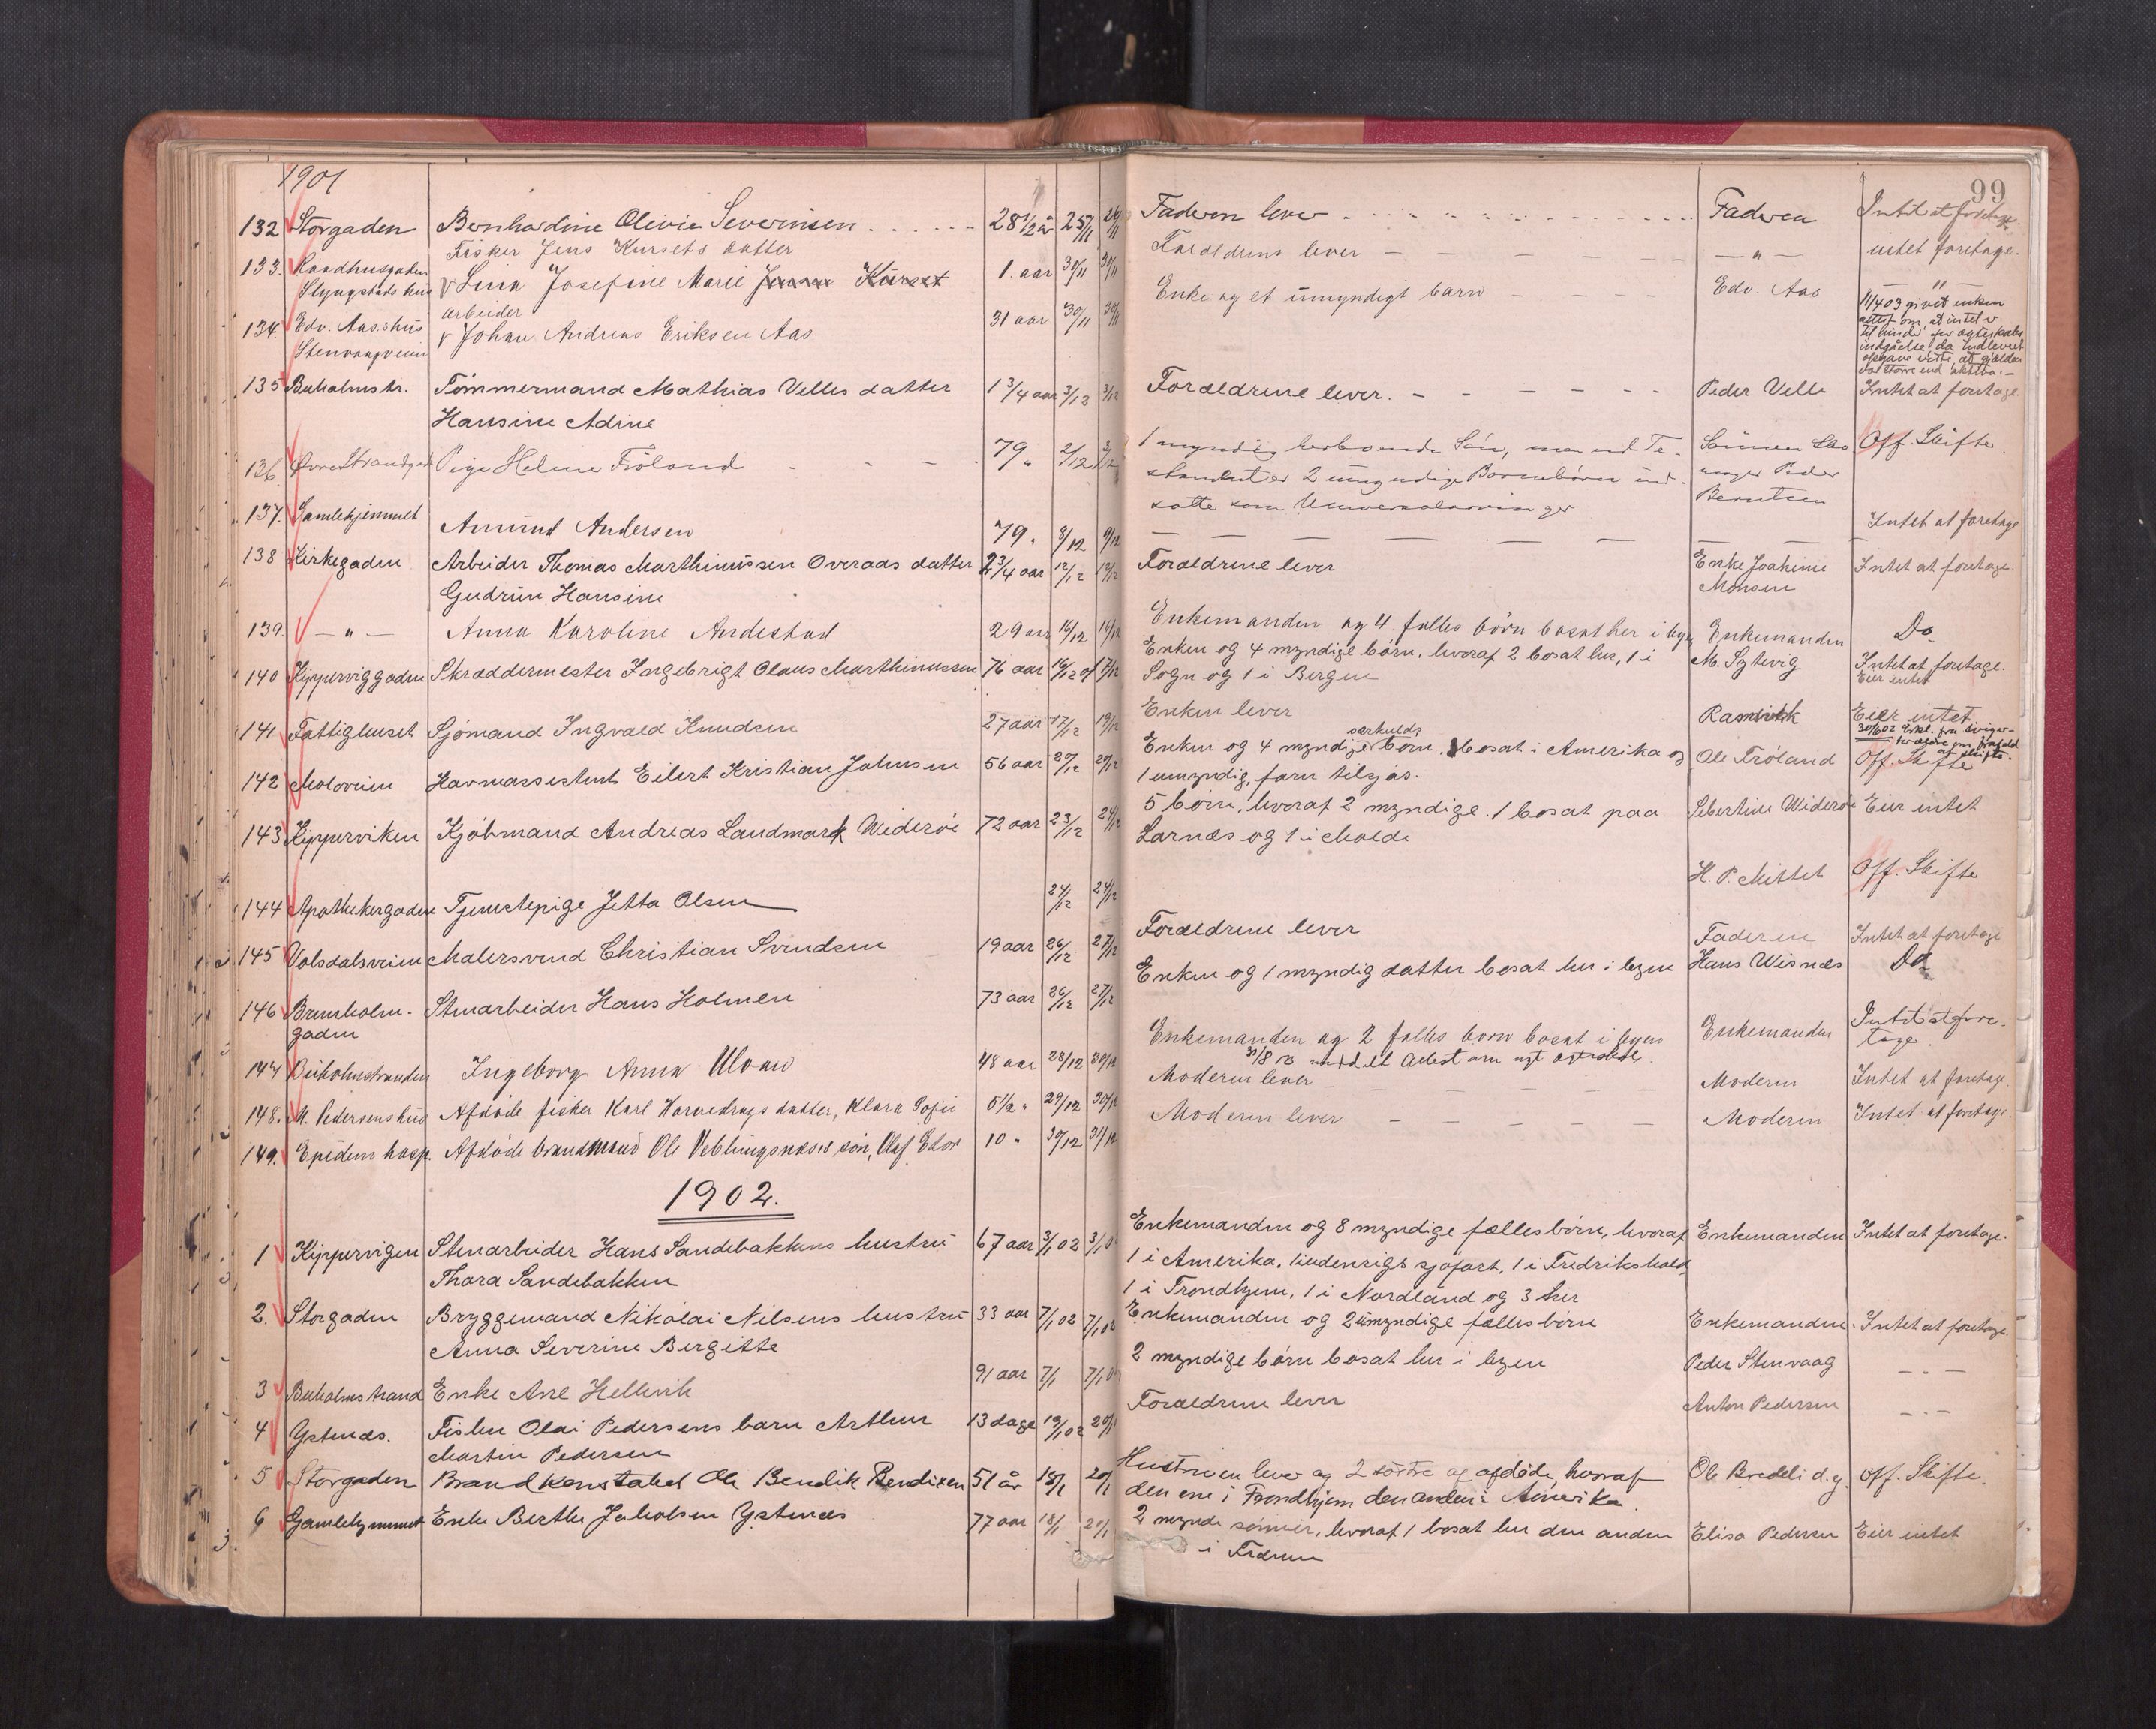 1901
99
132 Storgaden Bernhardine Olivie Severinsen 28 1/2 år 25/11 26/11 Faderen lever Faderen Intet at foretage.
133. Raadhusgaden Fisker Jens Kursets datter
Slyngstads hus Lina Josefine Marie 1. aar 30/11 30/11 Forældrene lever — " — intet foretage.
134. Edv. Aas hus arbeider
Stenvaagveien Johan Andreas Eriksen Aas 31 aar 30/11 30/11 Enke og et umyndigt barn Edv. Aas — " —
11/4 03 givet enken
attest om, at intet er
til hinder for ægteskabs
indgåelse, da indleveret
opgave viste, at gjælden
var større end aktiva.—
135 Buholmstr. Tömmermand Mathias Velles datter 1 3/4 aar 3/12 3/12 Forældrene lever. Peder Velle Intet at foretage.
Hansine Adine
136. Øvre Strandgad Pige Helene Fröland 79 " 2/12 3/12 1 myndig herboende Sön, men ved Te- Off. Skifte.
stamentet er 2 umyndige Barnebörn ind- Peder
satte som Universalarvinger Berntsen
137. Gamlehjemmet Amund Andersen 79 " 8/12 9/12 Intet at foretage
138 Kirkegaden Arbeider Thomas Marthinussen Overaas datter 2 3/4 aar 12/12 12/12 Forældrene lever Enke Joakime Intet at foretage.
Gudrun Hansine Monsen
139. — " — Anna Karoline Andestad 29 aar 16/12 16/12 Enkemanden og 4 fælles börn bosat her i byen Enkemanden Do
140 Kipperviggaden Skræddermester Ingebrigt Olaus Marthinussen 76 aar 16/12 01 17/12 Enken og 4 myndige börn, hvoraf 2 bosat her, 1 i M. Sytevig Intet at foretage.
Sogn og 1 i Bergen Eier intet
141 Fattighuset Sjömand Ingvald Knudsen 27 aar 17/12 19/12 Enken lever Ramvik Eier intet
142 Moloveien Havnassistent Eilert Kristian Johnsen 56 aar 20/12 20/12 Enken og 4 myndige særkulds börn, bosat i Amerika og Ole Fröland Off. Skifte
1 umyndig, faren tilsjös.
143 Kipperviken Kjöbmand Andreas Landmark Wideröe 72 aar 23/12 24/12 5 börn, hvoraf 2 myndige. 1 bosat paa Sebertine Wideröe Eier intet
Larsnes og 1 i Molde
144 Apothekergaden Tjenestepige Jetta Olsen 24/12 24/12 H. P. Mittet Off. Skifte
145 Volsdalsveien Malersvend Christian Svendsen 19 aar 26/12 27/12 Forældrene lever Faderen Intet at foretage
146 Brunholm- Stenarbeider Hans Holmen 73 aar 26/12 27/12 Enken og 1 myndig datter bosat her i byen Hans Wisnæs Do
gaden
147 Buholmstranden Ingeborg Anna Uloen 48 aar 28/12 30/12 Enkemanden og 2 fælles börn bosat i byen Enkemanden Intet at fore-
tage.
148. M. Pedersens hus Afdöde fisker Karl Harnedrags datter, Klara Sofie 5 1/2 " 29/12 30/12 Moderen lever Moderen Intet at foretage.
149. Epidem. hosp. Afdöde brandmand Ole Veblungsnæses sön, Olaf Edor 10 " 30/12 31/12 Moderen lever Moderen Intet at foretage.
1902.
1 Kippervigen Stenarbeider Hans Sandebakkens hustru 67 aar 3/1 02 3/1 0 Enkemanden og 8 myndige fællesbörn, hvoraf Enkemanden Intet at foretage.
Thora Sandebakken 1 i Amerika, 1 i udenrigs sjöfart, 1 i Fredrikshald,
1 i Trondhjem, 1 i Nordland og 3 her
2. Storgaden Bryggemand Nikolai Nilsens hustru 33 aar 7/1 02 7/1 02 Enkemanden og 2 umyndige fællesbörn Enkemanden Intet at foretage.
Anna Severine Bergitte
3 Buholmstrand Enke Ane Hellevik 91 aar 7/1 7/1 0 2 myndige börn bosat her i byen Peder Stenvaag — " —
4 Ystenæs. Fisker Olai Pedersens barn Arthur 13 dage 19/1 02 20/1 Forældrene lever Anton Pedersen — " —
Martin Pedersen
5 Storgaden Brandkonstabel Ole Bendik Bendixen 51 år 18/1 20/1 Hustruen lever og 2 söstre af afdöde, hvoraf Ole Bredeli d.y. Off. Skifte.
den ene i Trondhjem den anden i Amerika.
6 Gamlehjemmet Enke Berthe Jakobsen Ystenæs 77 aar 18/1 21/1 2 mynde sönner, hvoraf 1 bosat her den anden Elisa Pedersen Eier intet
i